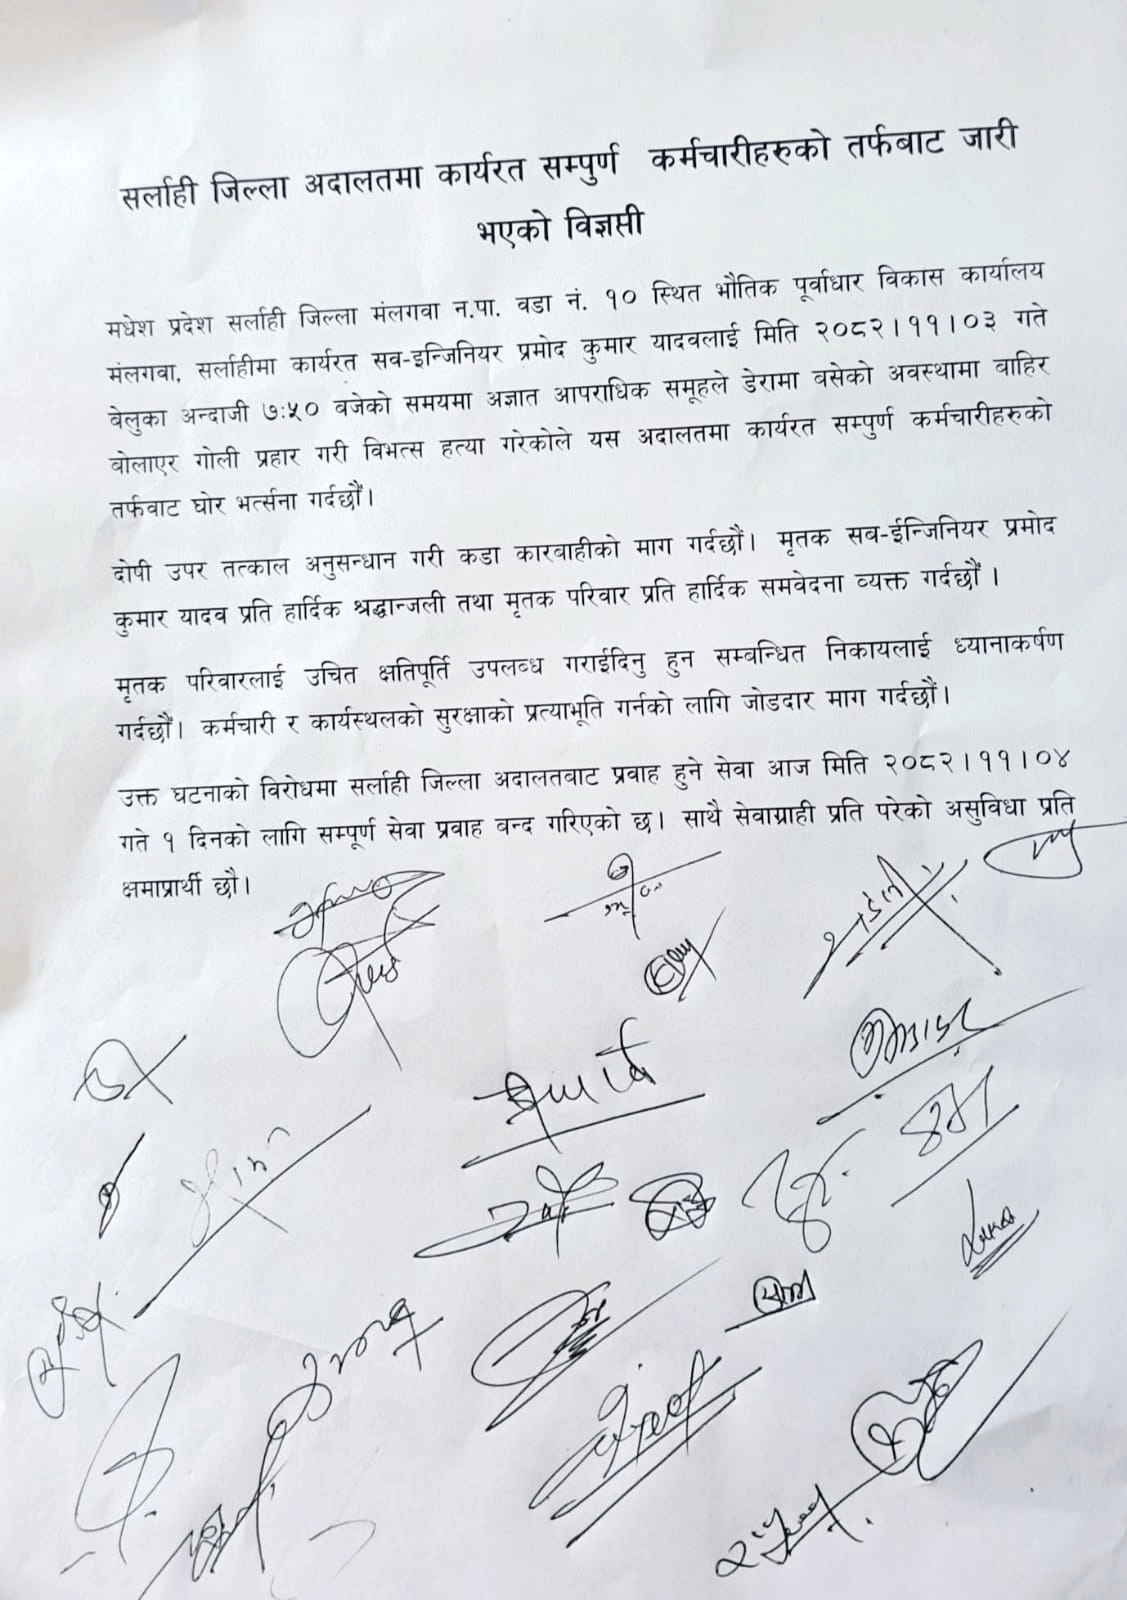 सर्लाही जिल्ला अदालतमा कार्यरत सम्पुर्ण कर्मचारीहरुको तर्फबाट जारी
भएको विज्ञप्ती
मधेश प्रदेश सर्लाही जिल्ला मंलगवा न.पा. वडा नं. १० स्थित भौतिक पूर्वाधार विकास कार्यालय
मंलगवा, सर्लाहीमा कार्यरत सव-इन्जिनियर प्रमोद कुमार यादवलाई मिति २०८२।११।०३ गते
बेलुका अन्दाजी ७:५० बजेको समयमा अज्ञात आपराधिक समूहले डेरामा बसेको अवस्थामा बाहिर
बोलाएर गोली प्रहार गरी विभत्स हत्या गरेकोले यस अदालतमा कार्यरत सम्पुर्ण कर्मचारीहरुको
तर्फवाट घोर भर्त्सना गर्दछौं।
दोषी उपर तत्काल अनुसन्धान गरी कडा कारबाहीको माग गर्दछौं। मृतक सब-ईन्जिनियर प्रमोद
कुमार यादव प्रति हार्दिक श्रद्धान्जली तथा मृतक परिवार प्रति हार्दिक समवेदना व्यक्त गर्दछौं ।
मृतक परिवारलाई उचित क्षतिपूर्ति उपलब्ध गराईदिनु हुन सम्बन्धित निकायलाई ध्यानाकर्षण
गर्दछौं। कर्मचारी र कार्यस्थलको सुरक्षाको प्रत्याभूति गर्नको लागि जोडदार माग गर्दछौं।
उक्त घटनाको विरोधमा सर्लाही जिल्ला अदालतबाट प्रवाह हुने सेवा आज मिति २०८२।११।०४
गते १ दिनको लागि सम्पूर्ण सेवा प्रवाह बन्द गरिएको छ। साथै सेवाग्राही प्रति परेको असुविधा प्रति
क्षमाप्रार्थी छौ।